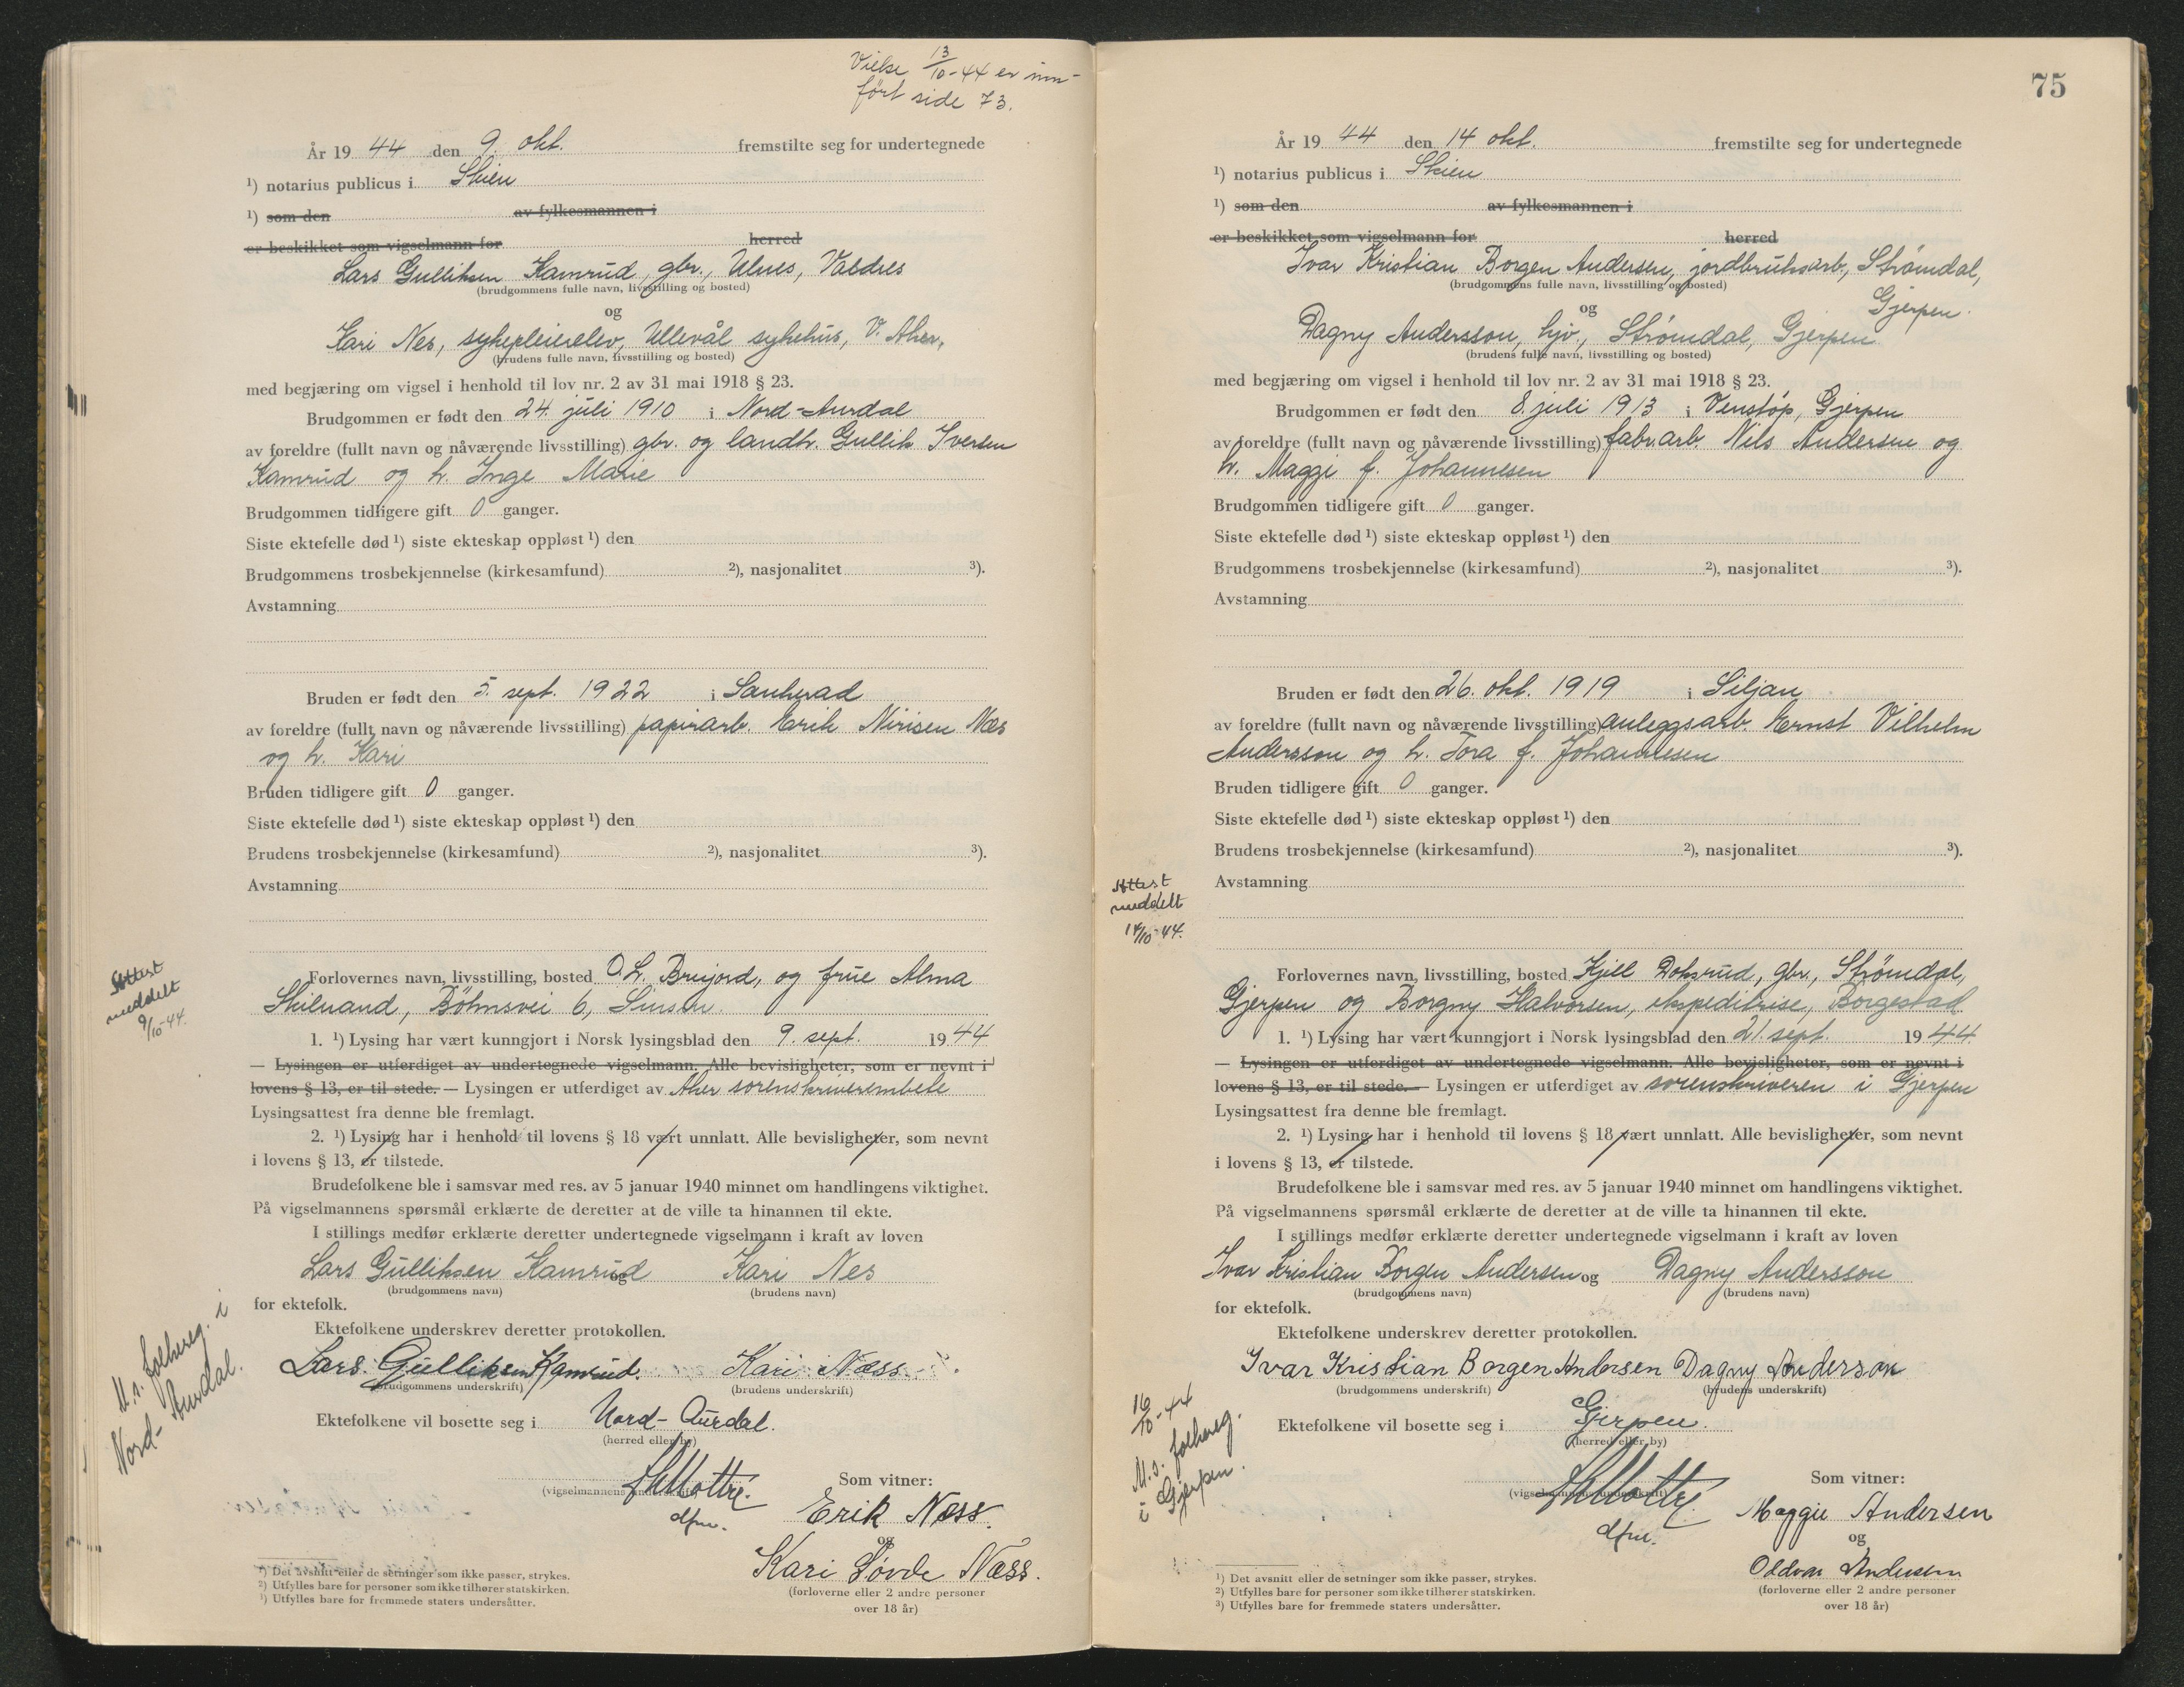 Vielse 13/10-44 er inn-
ført side 73.
År 19 44 den 9. okt. fremstilte seg for undertegnede
¹) notarius publicus i Skien
¹) som den av fylkesmannen i
er beskikket som vigselmann for herred
Lars Gulliksen Kamrud, gbr., Ulnes, Valdres
(brudgommens fulle navn, livsstilling og bosted)
og
Kari Nes, sykepleierelev, Ullevål sykehus, V. Aker,
(brudens fulle navn, livsstilling og bosted)
med begjæring om vigsel i henhold til lov nr. 2 av 31 mai 1918 § 23.
Brudgommen er født den 24. juli 1910 i Nord-Aurdal
av foreldre (fullt navn og nåværende livsstilling) gbr. og landh. Gullik Iversen
Kamrud og h. Inge Marie
Brudgommen tidligere gift 0 ganger.
Siste ektefelle død ¹) siste ekteskap oppløst ¹) den
Brudgommens trosbekjennelse (kirkesamfund) ²), nasjonalitet ³).
Avstamning
Bruden er født den 5. sept. 1922 i Sauherad
av foreldre (fullt navn og nåværende livsstilling) papirarb. Erik Nirisen Næs
og h. Kari
Bruden tidligere gift 0 ganger.
Siste ektefelle død ¹) siste ekteskap oppløst ¹) den
Brudens trosbekjennelse (kirkesamfund) ²), nasjonalitet ³).
Avstamning
Attest
meddelt
9/10-44.
Forlovernes navn, livsstilling, bosted O. L. Breijord, og frue Alma
Skilnand, Bøhmsvei 6, Sinsen.
1. ¹) Lysing har vært kunngjort i Norsk lysingsblad den 9. sept. 19 44
— Lysingen er utferdiget av undertegnede vigselmann. Alle bevisligheter, som er nevnt i
lovens § 13, er til stede. — Lysingen er utferdiget av Aker sorenskriverembete
Lysingsattest fra denne ble fremlagt.
2. ¹) Lysing har i henhold til lovens § 18 vært unnlatt. Alle bevisligheter, som nevnt
i lovens § 13, er tilstede.
Brudefolkene ble i samsvar med res. av 5 januar 1940 minnet om handlingens viktighet.
På vigselmannens spørsmål erklærte de deretter at de ville ta hinannen til ekte.
I stillings medfør erklærte deretter undertegnede vigselmann i kraft av loven
Lars Gulliksen Kamrud og Kari Nes
(brudgommens navn) (brudens navn)
for ektefolk.
Ektefolkene underskrev deretter protokollen.
Lars Gulliksen Kamrud. Kari Næss
(brudgommens underskrift) (brudens underskrift)
M. s. folkereg. i
Nord-Aurdal.
Ektefolkene vil bosette seg i Nord-Aurdal.
(herred eller by)
(vigselmannens underskrift)
dfm.
Som vitner:
Erik Næss.
og
Kari Søvde Næss.
(forloverne eller 2 andre personer
over 18 år)
¹) Det avsnitt eller de setninger som ikke passer, strykes.
²) Utfylles bare for personer som ikke tilhører statskirken.
³) Utfylles bare for fremmede staters undersåtter.
75
År 19 44 den 14 okt. fremstilte seg for undertegnede
¹) notarius publicus i Skien
¹) som den av fylkesmannen i
er beskikket som vigselmann for herred
Ivar Kristian Borgen Andersen, jordbruksarb., Strømdal,
(brudgommens fulle navn, livsstilling og bosted)
Gjerpen.
og
Dagny Andersson, hjv., Strømdal, Gjerpen
(brudens fulle navn, livsstilling og bosted)
med begjæring om vigsel i henhold til lov nr. 2 av 31 mai 1918 § 23.
Brudgommen er født den 8. juli 1913 i Venstøp, Gjerpen
av foreldre (fullt navn og nåværende livsstilling) fabr.arb. Nils Andersen og
h. Maggi f. Johannesen
Brudgommen tidligere gift 0 ganger.
Siste ektefelle død ¹) siste ekteskap oppløst ¹) den
Brudgommens trosbekjennelse (kirkesamfund) ²), nasjonalitet ³).
Avstamning
Bruden er født den 26. okt. 1919 i Siljan
av foreldre (fullt navn og nåværende livsstilling) anleggsarb. Ernst Vilhelm
Andersson og h. Tora f. Johannesen
Bruden tidligere gift 0 ganger.
Siste ektefelle død ¹) siste ekteskap oppløst ¹) den
Brudens trosbekjennelse (kirkesamfund) ²), nasjonalitet ³).
Avstamning
Attest
meddelt
14/10-44.
Forlovernes navn, livsstilling, bosted Kjell Doksrud, gbr., Strømdal,
Gjerpen og Borgny Halvorsen, ekspeditrise, Borgestad
1. ¹) Lysing har vært kunngjort i Norsk lysingsblad den 21. sept. 19 44
— Lysingen er utferdiget av undertegnede vigselmann. Alle bevisligheter, som er nevnt i
lovens § 13, er til stede. — Lysingen er utferdiget av sorenskriveren i Gjerpen
Lysingsattest fra denne ble fremlagt.
2. ¹) Lysing har i henhold til lovens § 18 vært unnlatt. Alle bevisligheter, som nevnt
i lovens § 13, er tilstede.
Brudefolkene ble i samsvar med res. av 5 januar 1940 minnet om handlingens viktighet.
På vigselmannens spørsmål erklærte de deretter at de ville ta hinannen til ekte.
I stillings medfør erklærte deretter undertegnede vigselmann i kraft av loven
Ivar Kristian Borgen Andersen og Dagny Andersson
(brudgommens navn) (brudens navn)
for ektefolk.
Ektefolkene underskrev deretter protokollen.
Ivar Kristian Borgen Andersen Dagny Anderson
(brudgommens underskrift) (brudens underskrift)
16/10-44
M. s. folkereg.
i Gjerpen.
Ektefolkene vil bosette seg i Gjerpen.
(herred eller by)
(vigselmannens underskrift)
dfm.
Som vitner:
Maggie Andersen
og
Oddvar Andersen
(forloverne eller 2 andre personer
over 18 år)
¹) Det avsnitt eller de setninger som ikke passer, strykes.
²) Utfylles bare for personer som ikke tilhører statskirken.
³) Utfylles bare for fremmede staters undersåtter.